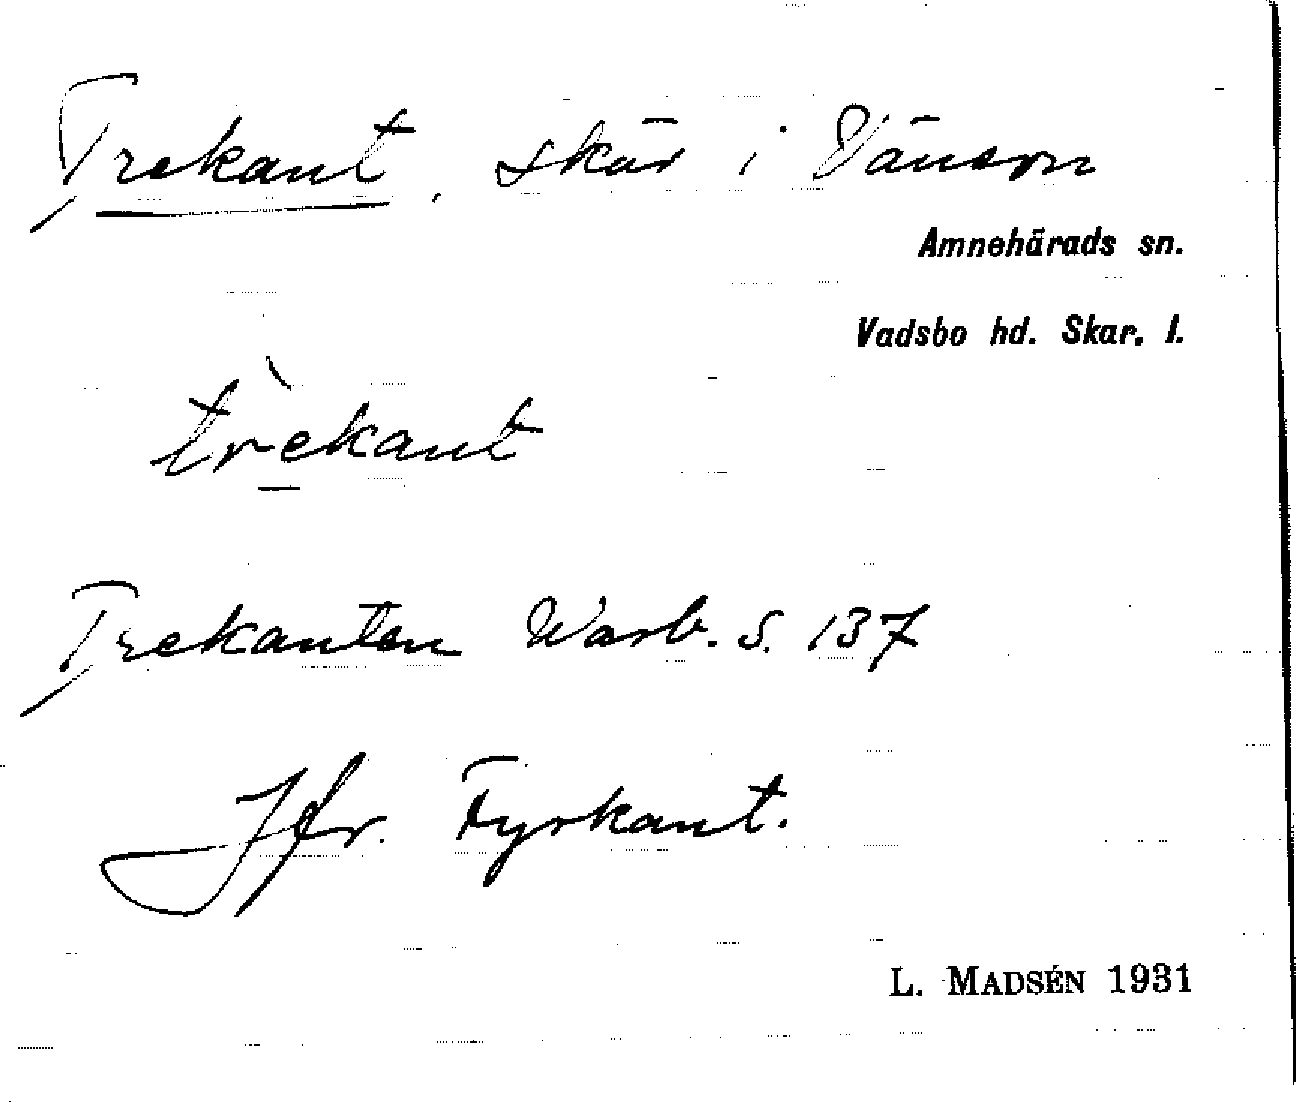 Trekant, skär i Vänern
Amnehärads sn.
Vadsbo hd. Skar. l.
trèkant
Trekanten Warb. S. 137
Jfr. Fyrkant.
L. MADSÉN 1931